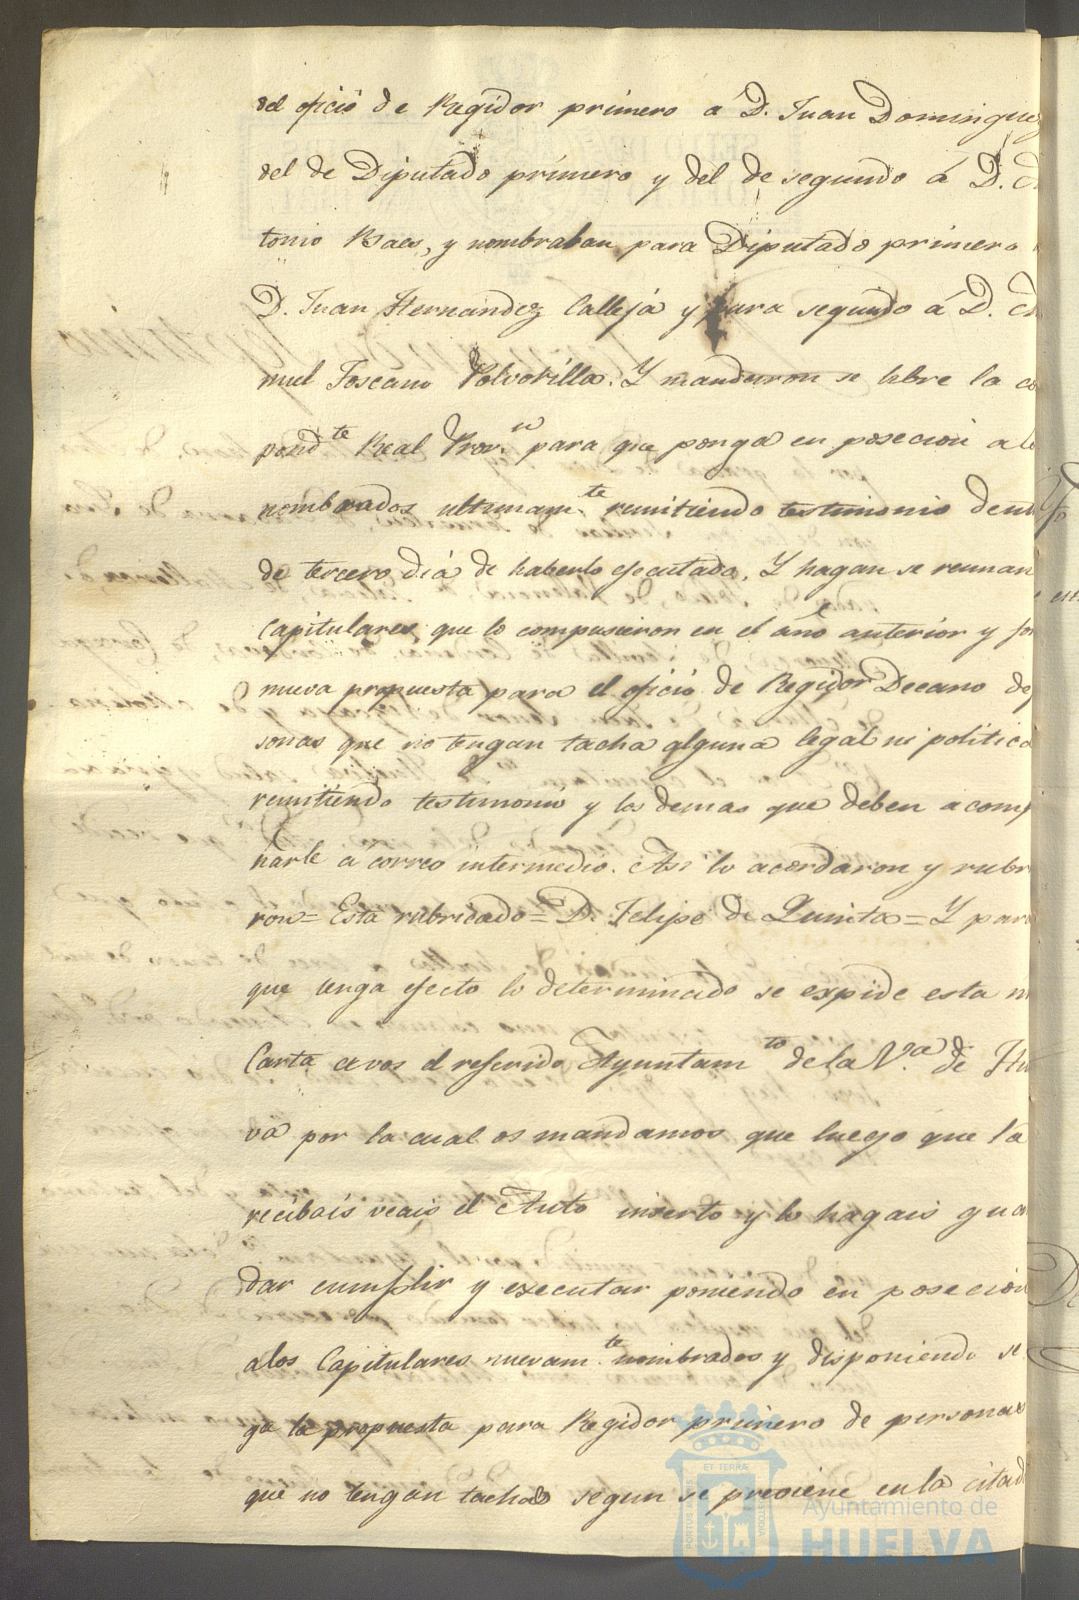 del oficio de Regidor primero á D. Juan Dominguez
del de Diputado primero y del de segundo á D. An
tonio Baes, y nombraban para Diputado primero
D. Juan Hernandez Calleja y para segundo á D. Ma
nuel Toscano Polvorilla. Y mandaron se libre la co
pond.te Real Prov.n para que ponga en posecion a lo
nombrados ultimam.te remitiendo testimonio dent
de tercero dia de haberlo ejecutado, Y hagan se reunan
Capitulares que lo compusieron en el año anterior y for
nueva propuesta para el oficio de Regidor Decano de p
sonas que no tengan tacha alguna legal ni politica
remitiendo testimonio y los demas que deben acomp
ñarle á correo intermedio. Asi lo acordaron y rubr
ron= Esta rubricado= D. Felipe de Quinta= Y para
que tenga efecto lo determinado se expide esta n
Carta a vos el referido Ayuntam.to de la V.a de Hu
va por la cual os mandamos que luego que la
recibais veais el Auto inserto y lo hagais gua
dar cumplir y executar poniendo en posecion
a los Capitulares nuevam.te nombrados y disponiendo se
ga la propuesta para Regidor primero de personas
que no tengan tacha segun se previene en la citad
ET TERRÆ
Ayuntamiento de
HUELVA